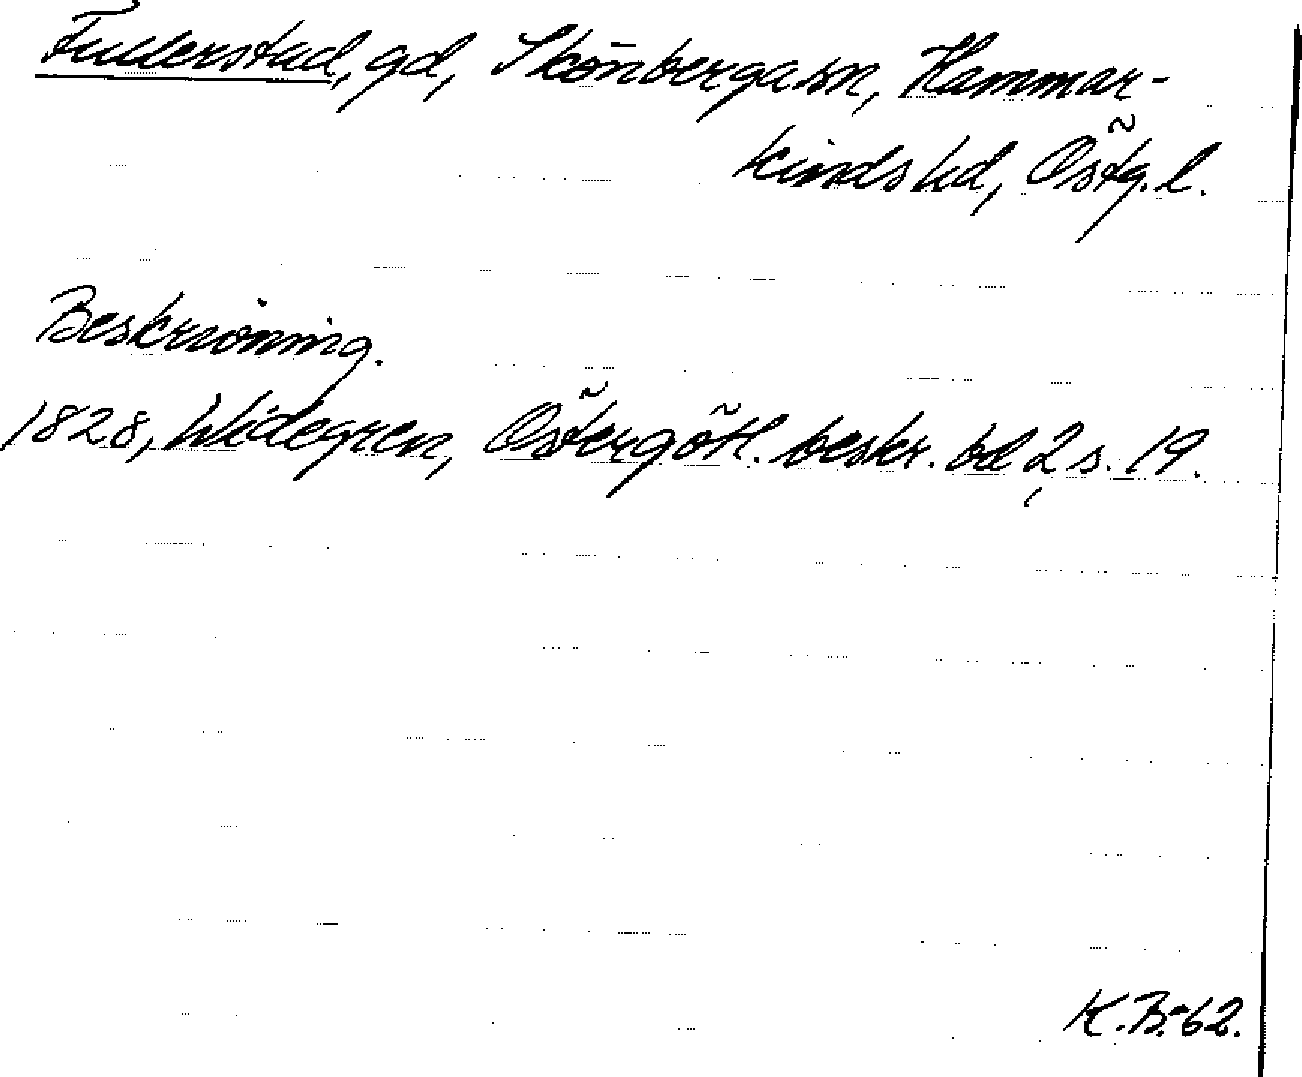 Fullerstad, gd, Skönberga sn, Hammar-
kinds hd, Östg. l.
Beskrivning.
1828, Widegren, Östergötl. beskr. bd 2, s. 19.
K.B.-62.